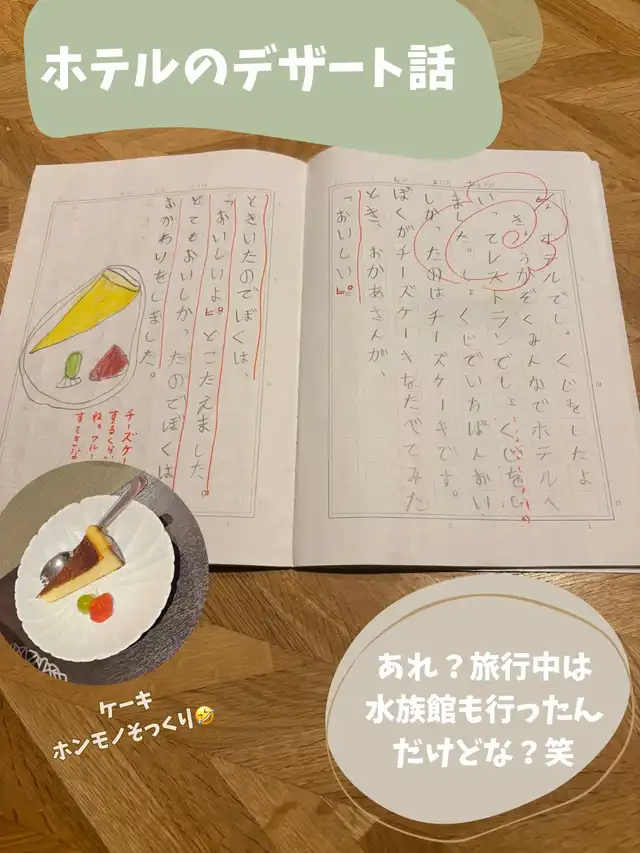 ホテルのデザート話
ホテルでしょくじをしたよ
きょうかぞくみんなでホテルへ
いってレストランでしょくじをし
ました。しょくじでいちばんおい
しかったのはチーズケーキです。
ぼくがチーズケーキをたべてみた
とき、おかあさんが、
「おいしい？」
ときいたのでぼくは、
「おいしいよ。」とこたえました。
とてもおいしかったのでぼくは
おかわりをしました。
チーズケー
するくらい
ね。フルー
すてきな
ケーキ
ホンモノそっくり🤣
あれ？旅行中は
水族館も行ったん
だけどな？笑